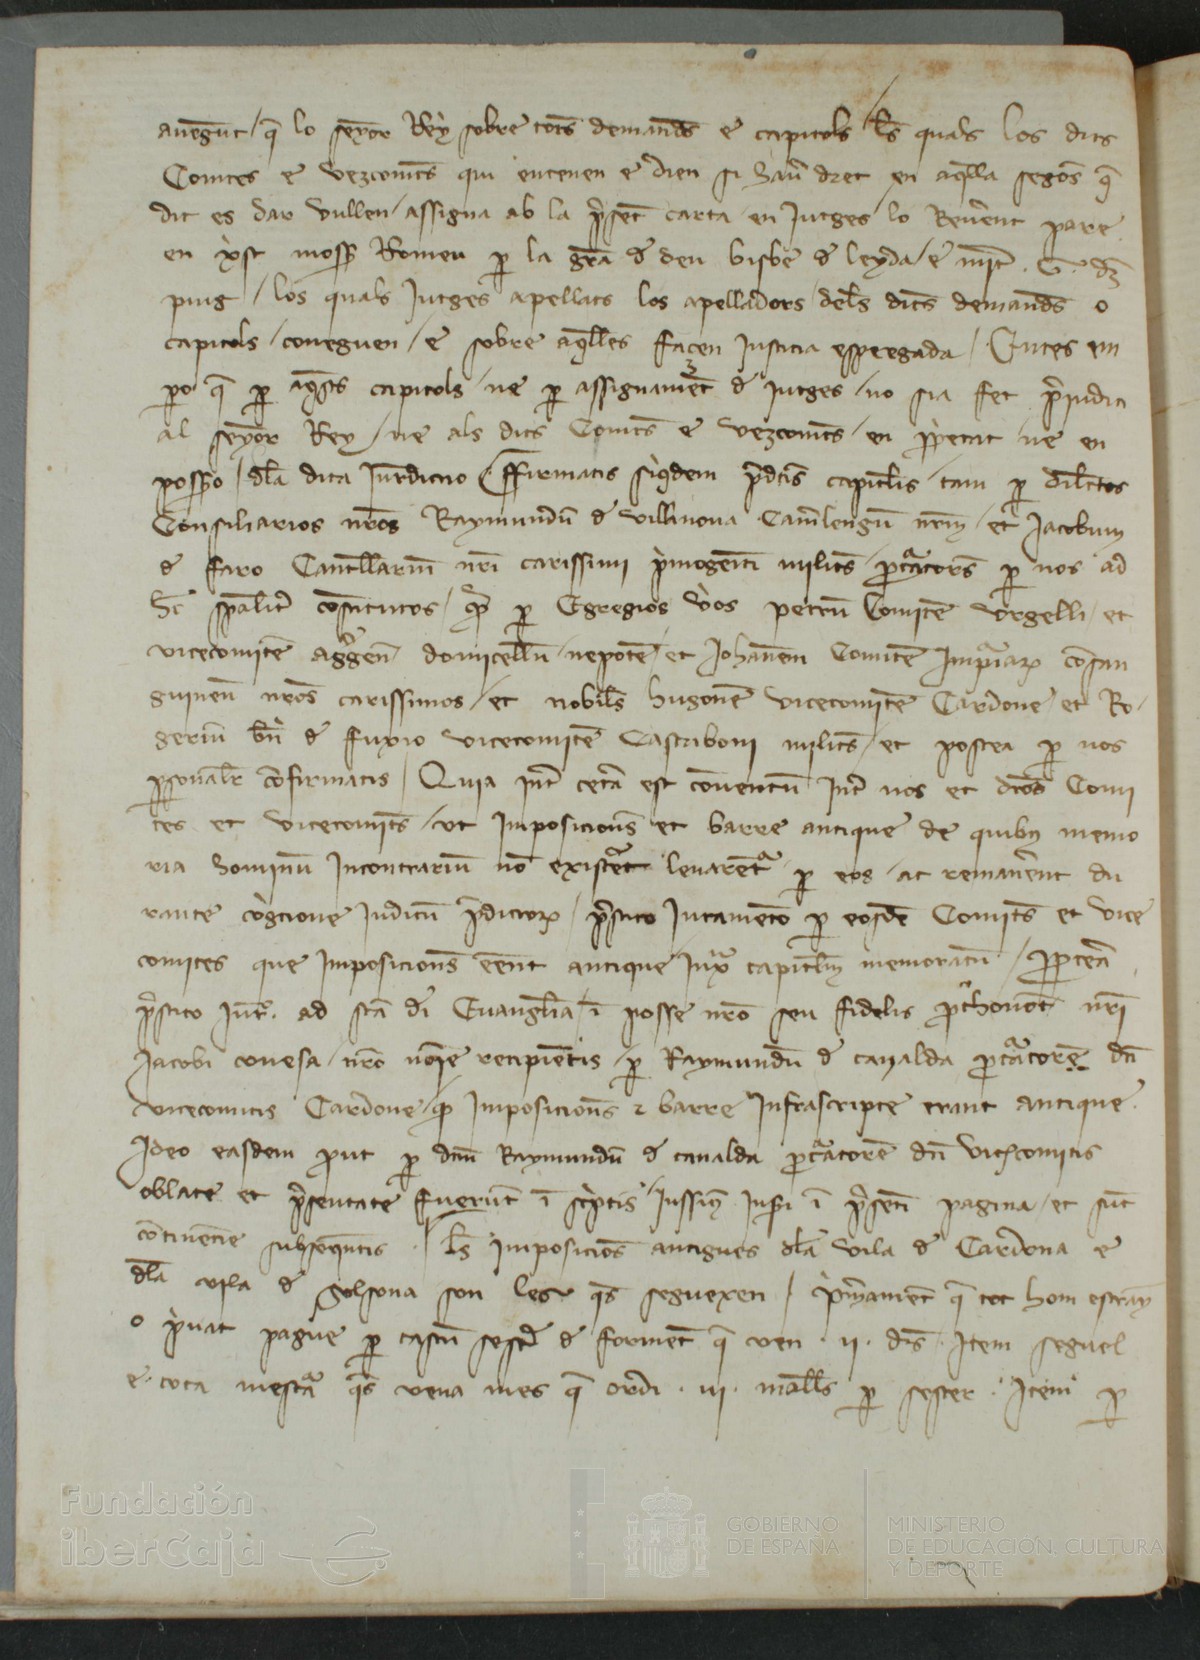 auengut / q̄ lo seyor Rey sobre tots demands e capitols / ls quals los dits
Comtes e vezcomts qui entenen e dien si hau dret en aq̄lla segōs q̄
dit es dar vullen / assigna ab la p̄sēt carta en Jutges lo Reuērent pare
en xp̄t moss Romeu p la gr̄a d deu bisbe d leyda / e mict . G . dz
puig / los quals Jutges apellats los apelladors dels dits demands o
capitols / coneguen / e sobre aq̄lles facen Justicia espeegada / Entes em
pero q̄ p aq̄sts capitols / ne p assignamēt d Jutges / no sia fet p̄iudici
al seyor Rey / ne als dits Comts e vezcomts / en p̄pietat / ne en
possō / dla dita Jur̄dictio / Cfirmatis siqdem p̄dcīs capitlis / tam p dilctos
Consiliarios nr̄os Raymundū d villanoua Cam̄lengū nr̄m / et Jacobum
d faro Cancllariū nr̄i carissimi p̄mogeniti milits / p̄curatores p nos ad
hc spālit constitutos / q̄ p Egregios vīos petrū Comitē vrgelli / et
vicecomitē aggēn domicellū nepotē / et Johannem Comitē Impuriarz cōsan
guineū nr̄os carissimos / et nobils hugonē vicecomitē Cardone / et Ro
geriū bn̄ d fuxio vicecomitē Castriboni milits / et postea p nos
psonalr confirmatis / Quia int cetā est conuentū Int nos et dcōs Comi
tes et vicecomits / vt Imposicions et barre antique de quibz memo
ria hominū Incontrariū nō existeret leuarent p eos / ac remanērent du
rante cogcione Iudicū p̄dictorz / p̄stito Iuramento p eosdē Comits et vice
comites que Imposicions eēnt antique Iuxa capitlm memoratū / ppterea
p̄stito Iur . ad scā di Euanglia / ī posse nr̄o seu fidelis p̄thonot nr̄i
Jacobi conesa / nr̄o nōie recipiētis / p Raymundū d canalda p̄curatorē dn̄
vicecomitis Cardone / q̄ Imposicions ⁊ barre Infrascripte erant antique .
Ideo easdem put p dcm̄ Raymundū d canalda p̄curatorē dn̄ vicecomitis
oblate et p̄sentate fuerūt ī scptis / Iussim9 Insi ī p̄seti pagina / et sūt
continencie subsequētis . ls Imposicios antigues dla vila d Cardona e
dla vila d Solsona son les qs seguexen / p̄mrament q̄ tot hom estrany
o p̄uat pague p cascū sestr d forment q̄ ven . ij . drs . Item seguel
e tota mestura qs vena mes q̄ ordi . iij . malls p sester . Item p
Fundación
iberCaja
GOBIERNO
DE ESPAÑA
MINISTERIO
DE EDUCACIÓN, CULTURA
Y DEPORTE